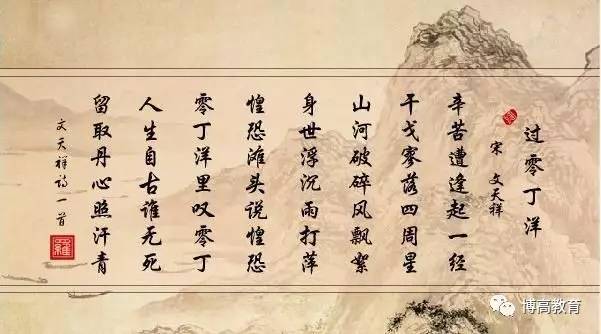 过零丁洋
宋 文天祥
辛苦遭逢起一经
干戈寥落四周星
山河破碎风飘絮
身世浮沉雨打萍
惶恐滩头说惶恐
零丁洋里叹零丁
人生自古谁无死
留取丹心照汗青
文天祥诗一首
羅
博高教育